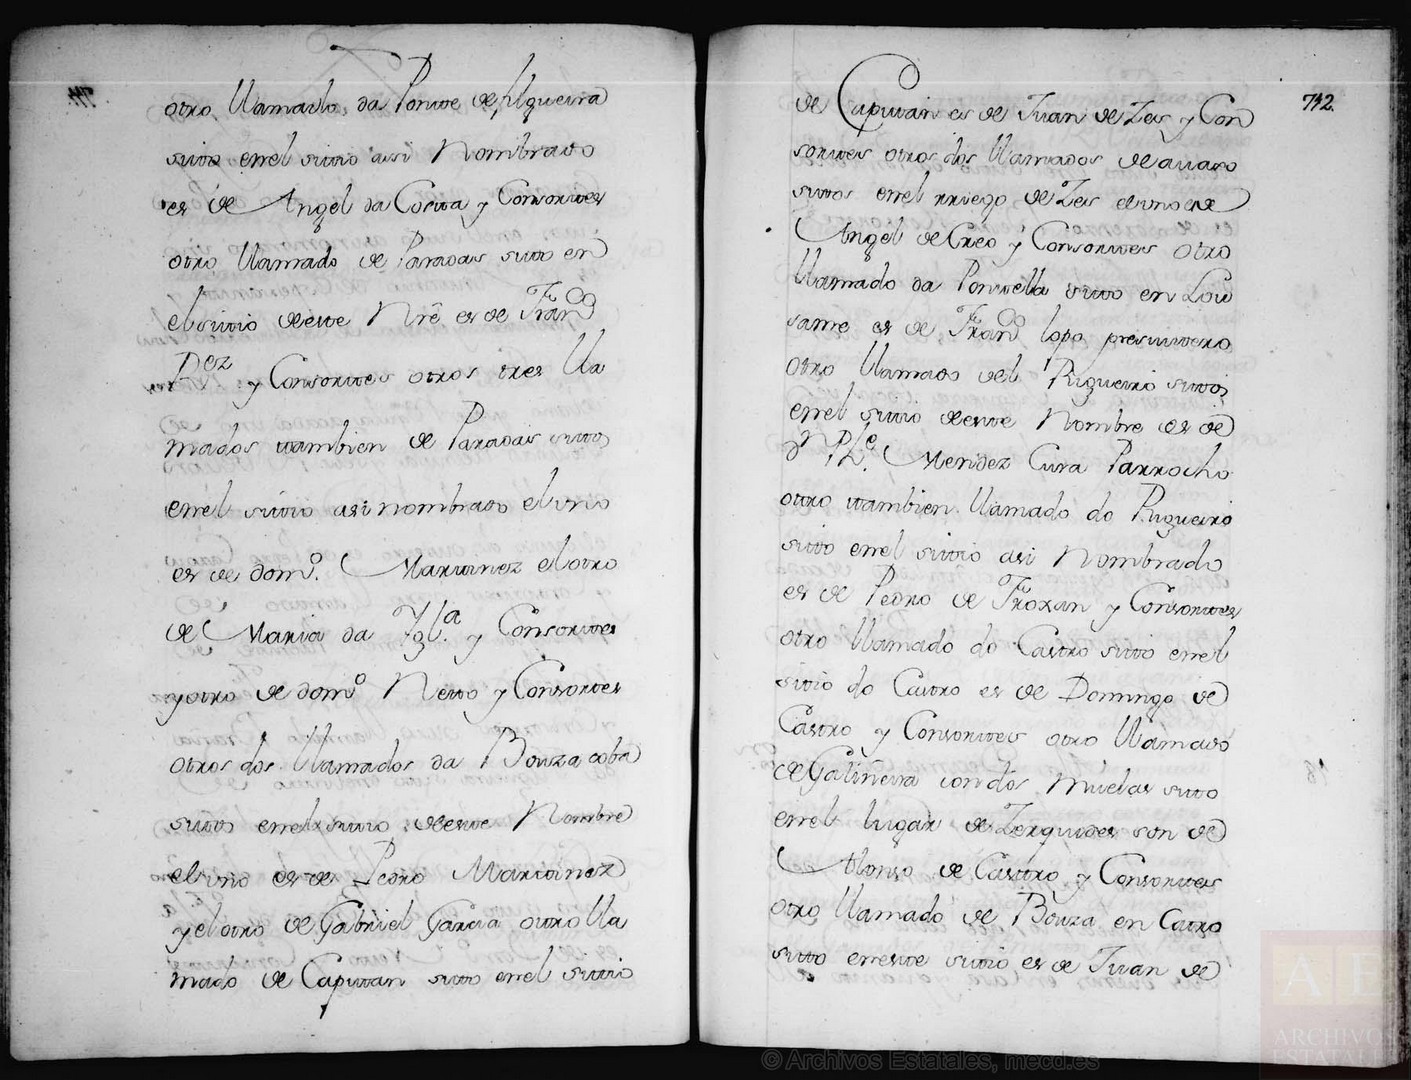 otro llamado da Ponte de filgueira
sitto en el sittio asi Nombrado
es de Angel da Costta y Consorttes
otro llamado de Paradas sitto en
el sitio de este Nre es de Franco
Dez y Consortes otros tres lla
mados ttambien de Paradas sittos
en el sitio asi nombrado el uno
es de Domo. Martinez el otro
de Maria da Yla. y Consortes
y otro de Domo Neto y Consortes
otros dos llamados da Bouza coba
sittos en el sitio de este Nombre
el uno es de Pedro Martinez
y el otro de Gabriel Garcia otro lla
mado de Capittan sitto en el sittio
742.
de Capittan es de Juan de Zas y Con
sortes otros dos llamados de auajo
sittos en el rriego de Zas el uno es de
Angel de Creo y Consorttes otro
llamado da Pontella sitto en Lou
same es de Franco lopo presuittero
otro llamado del Rigueiro sitto
en el sittio de este Nombre es de
Dn Phe. Mendez Cura Parrocho
otro ttambien llamado do Rigueiro
sitto en el sittio asi Nombrado
es de Pedro de Froxan y Consorttes
otro llamado do Castro sitto en el
sitio do Castro es de Domingo de
Castro y Consorttes otro llamado
de Galiñeira con dos Muelas sitto
en el lugar de Zerquides son de
Alonso de Casttro y Consorttes
otro llamado de Bouza en Catro
sitto en este sittio es de Juan de
© Archivos Estatales, mecd.es
AE
ARCHIVOS
ESTATALES